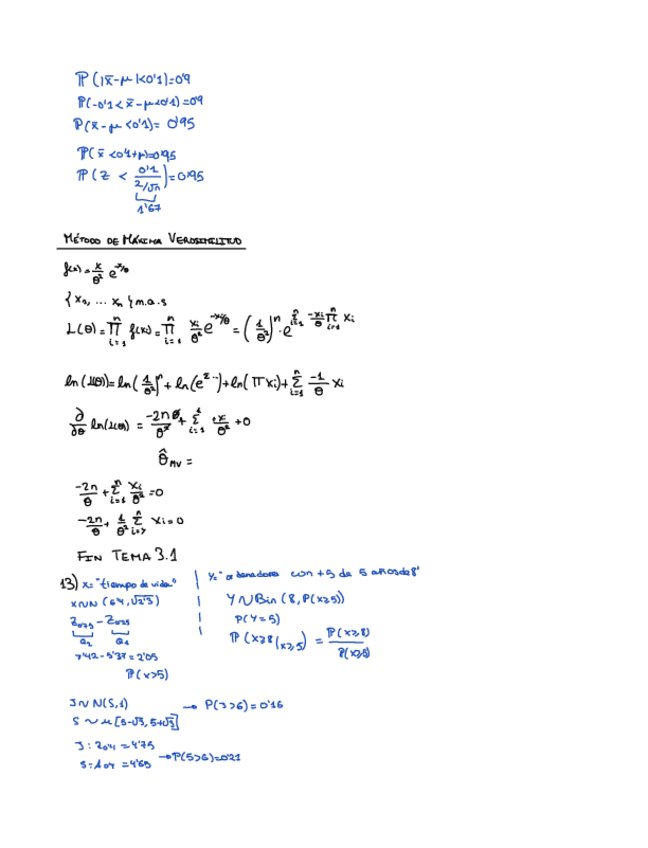 P(|x̄-μ|<0'1)=0'9
P(-0'1<x̄-μ<0'1)=0'9
P(x̄-μ<0'1)= 0'95
P(x̄<0'1+μ)=0'95
P(Z < 0'1/(2/√n))=0'95
1'67
MÉTODO DE MÁXIMA VEROSIMILITUD
f(x)= x/θ² e^-x/θ
{x₁, ... xₙ} m.a.s
L(θ)= ∏ᵢ₌₁ⁿ f(xi)= ∏ᵢ₌₁ⁿ xi/θ² e^-xi/θ = (1/θ²)ⁿ · e^(∑ᵢ₌₁ⁿ -xi/θ) ∏ᵢ₌₁ⁿ xi
ln(L(θ))=ln(1/θ²)ⁿ + ln(e^∑...)+ln(∏xi)+∑ᵢ₌₁ⁿ -1/θ xi
∂/∂θ ln(L(θ)) =
θ̂ MV =
-2n/θ + ∑ᵢ₌₁ⁿ xi/θ² =0
-2n/θ + 1/θ² ∑ᵢ₌₁ⁿ xi=0
FIN TEMA 3.1
13) X="tiempo de vida" | Y= con +5 de 5 años de 8"
X∼N(6'4,√2'3) | Y∼Bin(8,P(x≥5))
P(Y=5)
P(x≥8|x≥5) = P(x≥8)/P(x≥5)
7'42-5'37=2'05
P(x>5)
J∼N(5,1) → P(J>6)=0'16
S∼μ[5-√3,5+√3]
J: =4'75
S: =4'65 → P(S>6)=0'21